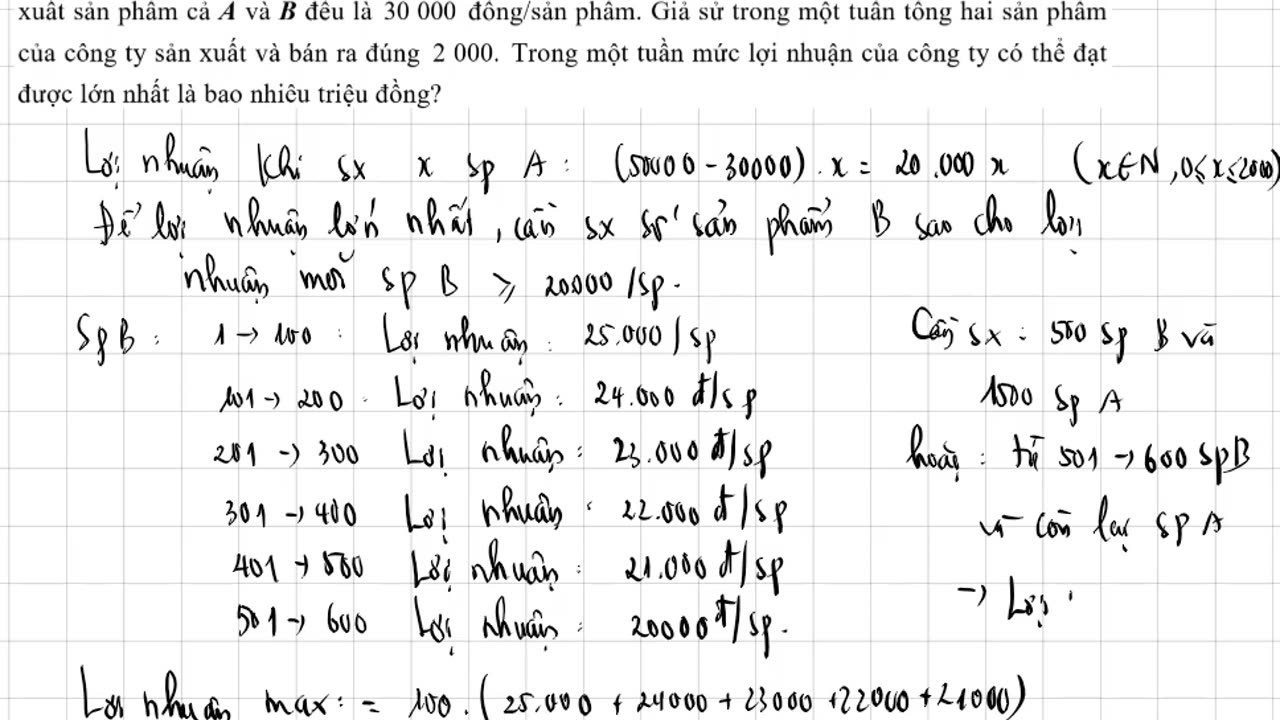 xuất sản phẩm cả A và B đều là 30 000 đồng/sản phẩm. Giả sử trong một tuần tổng hai sản phẩm
của công ty sản xuất và bán ra đúng 2 000. Trong một tuần mức lợi nhuận của công ty có thể đạt
được lớn nhất là bao nhiêu triệu đồng?
Lợi nhuận khi sx x sp A : (50000 - 30000) . x = 20.000 x (x ∈ N, 0 ≤ x ≤ 2000)
Để lợi nhuận lớn nhất, cần sx số sản phẩm B sao cho lợi
nhuận mỗi sp B ≥ 20000 /sp.
Sp B : 1 → 100 : Lợi nhuận : 25.000 / sp
101 → 200 : Lợi nhuận : 24.000 đ/sp
201 → 300 Lợi nhuận : 23.000 đ/sp
301 → 400 Lợi nhuận : 22.000 đ/sp
401 → 500 Lợi nhuận : 21.000 đ/sp
501 → 600 Lợi nhuận : 20000 đ/sp.
Cần sx : 500 sp B và
1500 sp A
hoặc : từ 501 → 600 sp B
và còn lại sp A
→ Lợi
Lợi nhuận max : = 100 . ( 25.000 + 24000 + 23000 + 22000 + 21000 )